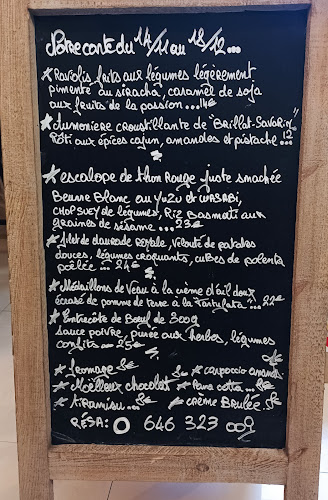 Notre carte du 14/11 au 18/12...
* Raviolis frits aux légumes légèrement
pimenté au siracha, caramel de soja
aux fruits de la passion...14€
* Aumonière croustillante de "Brillat-Savarin"
Rôti aux épices cajun, amandes et pistache...12
* escalope de thon Rouge juste snackée
Beurre Blanc au yuzu et WASABI,
CHOP SUEY de légumes, Riz Basmati aux
graines de sésame...23€
* filet de daurade royale, velouté de patates
douces, légumes croquants, cubes de polenta
poêlée...24€
* Médaillons de Veau à la crème d'ail doux
écrasé de pomme de terre à la Tartufata"...22€
* Entrecôte de Bœuf de 300g
sauce poivre, purée aux herbes, légumes
confits...25€
* fromage 8€ * carpaccio ananas 8€
* Moëlleux chocolat 8€ * Pana cotta...8€
* tiramisu...8€ * CRÈME BRULÉE.8€
RÉSA: 0 646 323 009